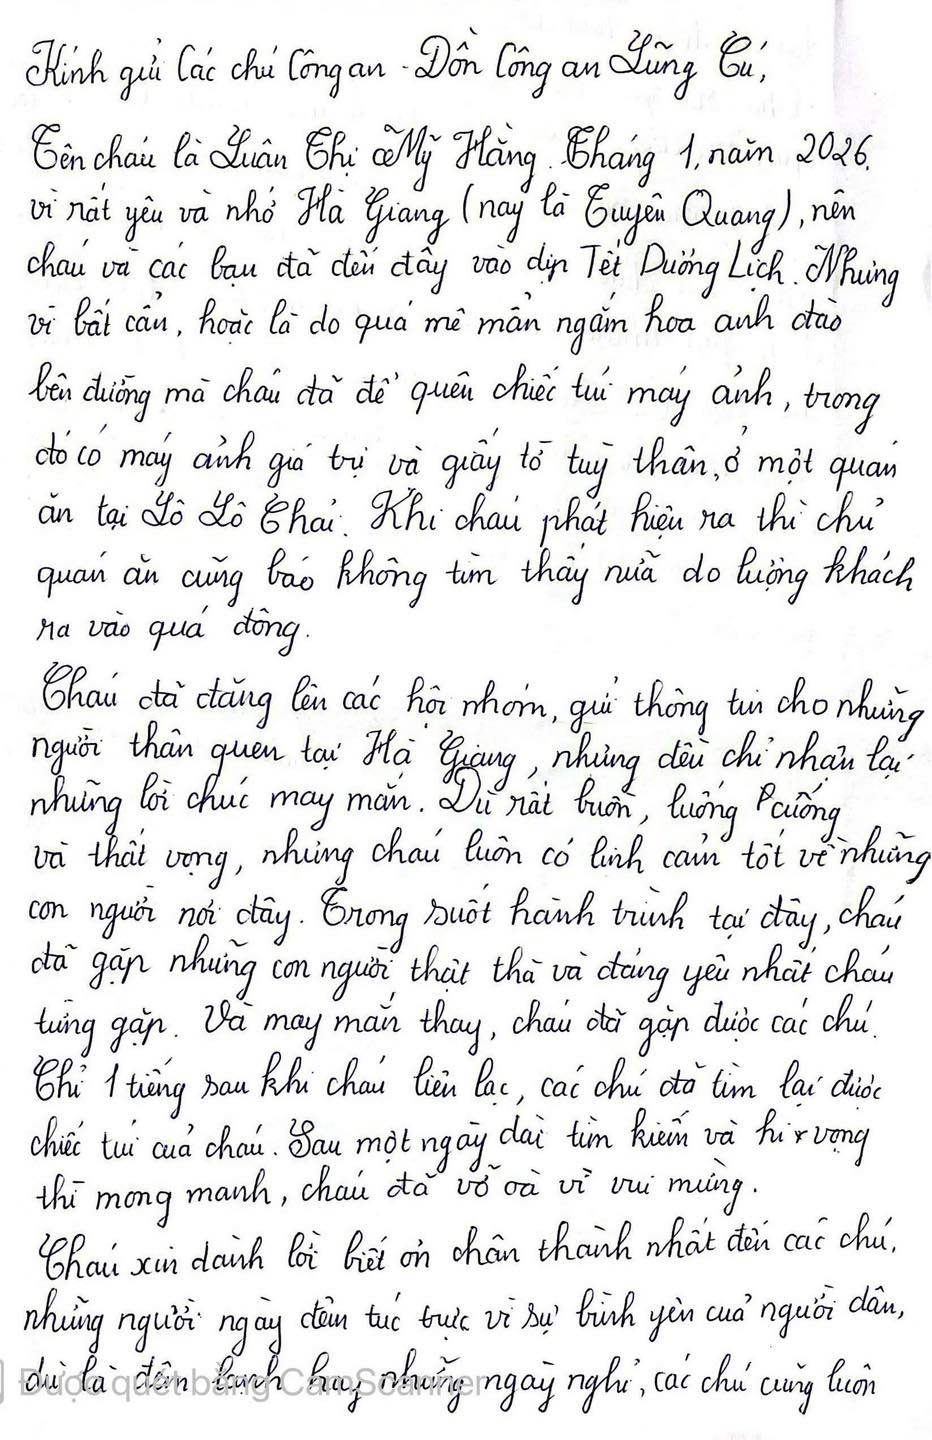 Kính gửi Các chú Công an - Đồn Công an Lũng Cú,
Tên cháu là Luân Thị Mỹ Hằng. Tháng 1, năm 2026,
vì rất yêu và nhớ Hà Giang (nay là Tuyên Quang), nên
cháu và các bạn đã đến đây vào dịp Tết Dương Lịch. Nhưng
vì bất cẩn, hoặc là do quá mê mẩn ngắm hoa anh đào
bên đường mà cháu đã để quên chiếc túi máy ảnh, trong
đó có máy ảnh giá trị và giấy tờ tuỳ thân, ở một quán
ăn tại Lô Lô Chải. Khi cháu phát hiện ra thì chủ
quán ăn cũng báo không tìm thấy nữa do lượng khách
ra vào quá đông.
Cháu đã đăng lên các hội nhóm, gửi thông tin cho những
người thân quen tại Hà Giang, nhưng đều chỉ nhận lại
những lời chúc may mắn. Dù rất buồn, luống cuống
và thất vọng, nhưng cháu luôn có linh cảm tốt về những
con người nơi đây. Trong suốt hành trình tại đây, cháu
đã gặp những con người thật thà và đáng yêu nhất cháu
từng gặp. Và may mắn thay, cháu đã gặp được các chú.
Chỉ 1 tiếng sau khi cháu liên lạc, các chú đã tìm lại được
chiếc túi của cháu. Sau một ngày dài tìm kiếm và hi vọng
thì mong manh, cháu đã vỡ oà vì vui mừng.
Cháu xin dành lời biết ơn chân thành nhất đến các chú,
những người ngày đêm túc trực vì sự bình yên của người dân,
dù là đêm lạnh hay những ngày nghỉ, các chú cũng luôn
Được quét bằng CamScanner